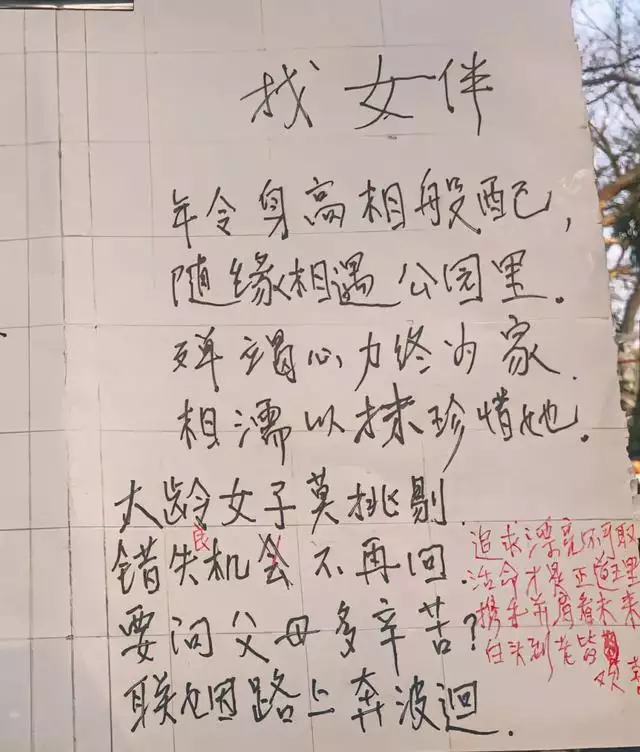 找女伴
年令身高相般配,
随缘相遇公园里.
殚竭心力终为家.
相濡以抹珍惜她.
大龄女子莫挑剔.
错失良机会不再回.
要问父母多辛苦?
联姻路上奔波迴.
追求漂亮不可取
活命才是正道理
携手并肩看未来
白头到老皆欢喜